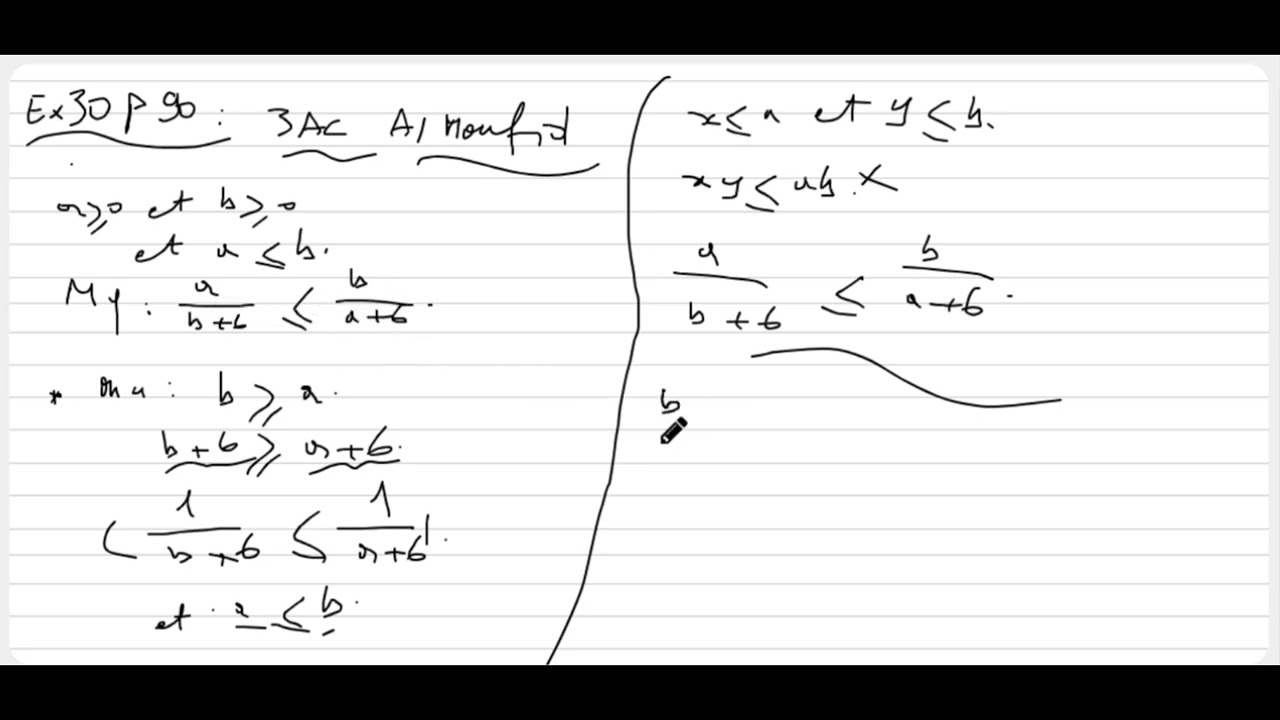 Ex30 p 90 : 3AC Al Moufid
a ≥ 0 et b ≥ 0
et a ≤ b.
Mq : a/(b+6) ≤ b/(a+6).
* on a : b ≥ a.
b+6 ≥ a+6.
( 1/(b+6) ≤ 1/(a+6).
et a ≤ b.
x ≤ a et y ≤ b.
xy ≤ ab. X
a/(b+6) ≤ b/(a+6).
b